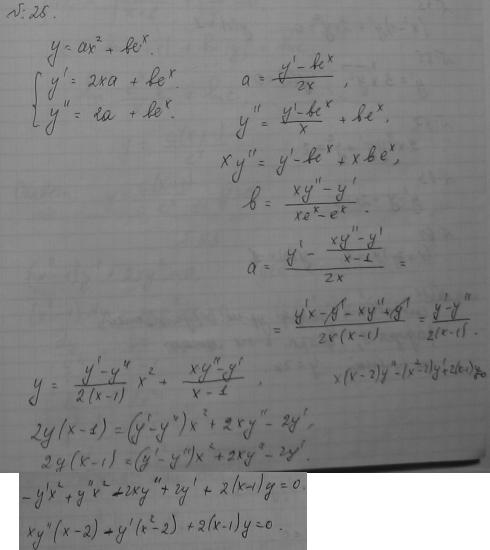 № 25.
y = ax² + be^x.
{ y' = 2xa + be^x.
y'' = 2a + be^x.
a = (y' - be^x)/(2x),
y'' = (y' - be^x)/x + be^x.
xy'' = y' - be^x + xbe^x,
b = (xy'' - y')/(xe^x - e^x).
a = (y' - (xy'' - y')/(x - 1))/(2x) =
= (y'x - y' - xy'' + y')/(2x(x-1)) = (y' - y'')/(2(x-1)).
y = (y' - y'')/(2(x-1)) x² + (xy'' - y')/(x - 1),
x(x-2)y'' - (x²-2)y' + 2(x-1)y=0
2y(x-1) = (y' - y'')x² + 2xy'' - 2y',
2y(x-1) = (y' - y'')x² + 2xy'' - 2y'.
-y'x² + y''x² - 2xy'' + 2y' + 2(x-1)y = 0.
xy''(x-2) - y'(x²-2) + 2(x-1)y = 0.